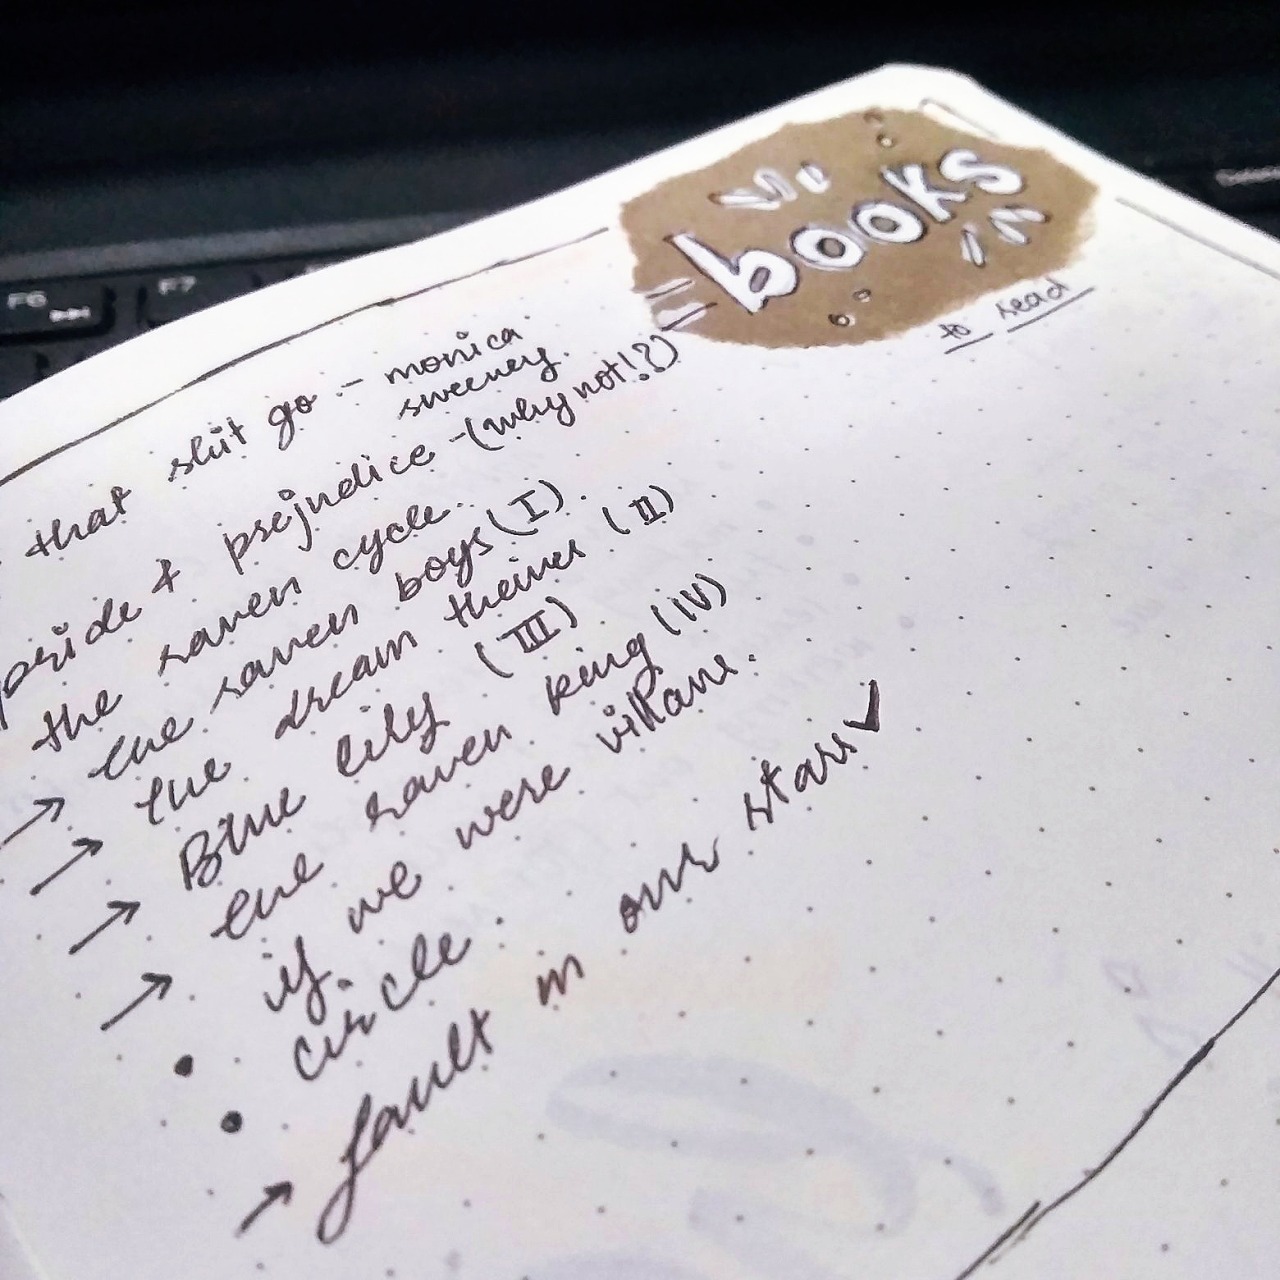 F6
F7
books
to read
that shit go - monica
sweeney.
pride & prejudice - (why not!?)
the raven cycle.
→ the raven boys (I).
→ the dream theives (II)
→ Blue lily (III)
→ the raven king (iv)
• if we were villans.
• circle.
→ fault in our stars ✓